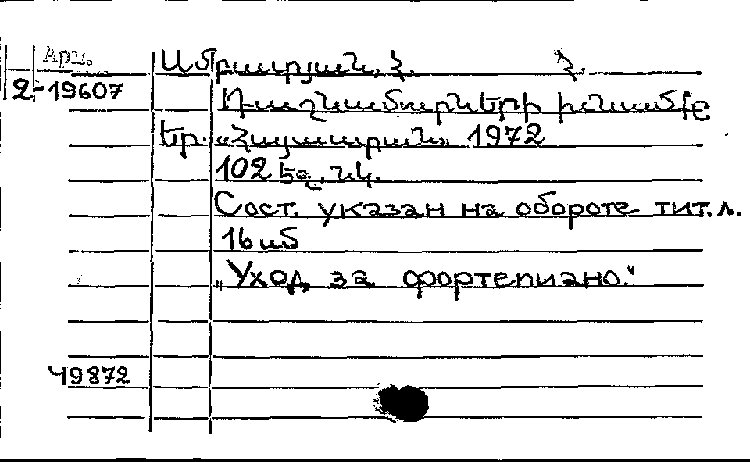 Арм.
2-19607
Ամբարյան, Հ. Հ.
Դաշնամուրների խնամքը
Եր. «Հայաստան» 1972
102 եջ. նկ.
Сост. указан на обороте тит. л.
16 սմ
„Уход за фортепиано.“
49872